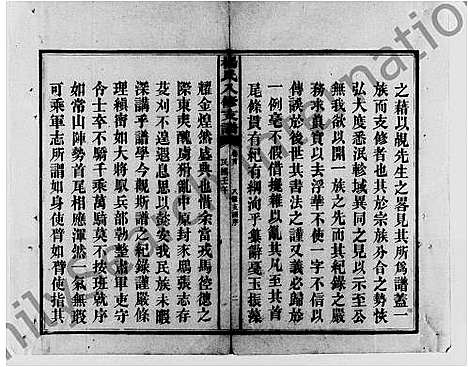 之藉以覘先生之畧見其所為譜蓋一
族而支修者也其於宗族分合之勢恢
弘大度悉泯畛域門戶之見以示至公
無我欲以開一族之先而其紀錄之謹
務求真實以去浮華不使一字不信以
傳誤於後世其書法之謹又義必歸於
一例毫不假借攙雜以亂其凡至其首
尾條貫有杞有綱洵乎集辭戞玉振藻
氏八修支譜
耀金煌然盛典也惜余當戎馬倥傯之
際東夷醜虜猾亂中原封豕鴟張志存
芟刈不遑退息思以彭安我民族未暇
深講乎譜學今觀斯譜之紀錄謹嚴條
理縝密如大將馭兵部勒整肅軍吏守
令士卒不驕千乘萬騎莫不按班就序
如常山陣勢首尾相應渾然一氣無瑕
可乘軍志所謂如身使臂如臂使指其